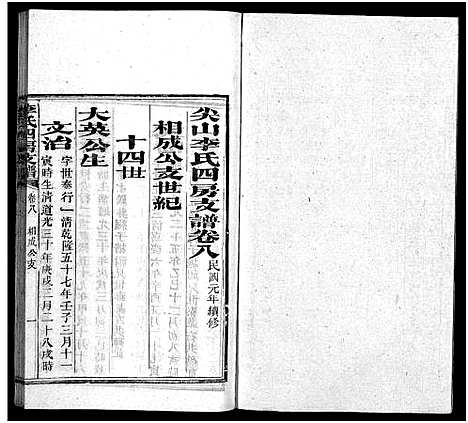 尖山李氏四房支譜卷八 民國元年續修
相成公支世紀
十四世
大英公生
文治 字世奉行一清乾隆五十七年壬子三月十一
寅時生清道光三十年庚戌三月二十八戌時
李氏四房支譜 卷八 相成公支 一